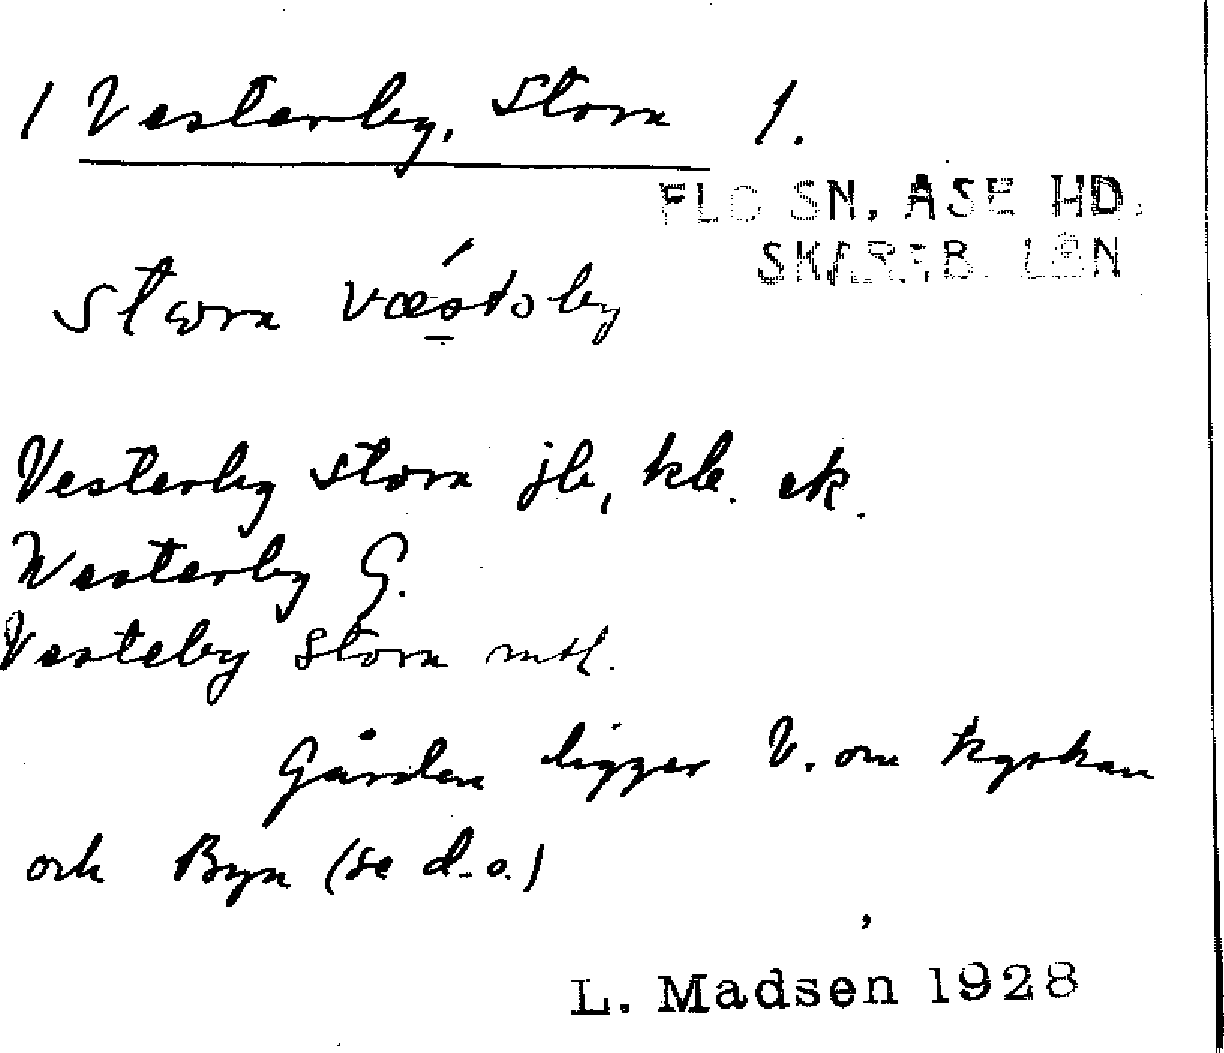 1 Vesterby, Stora 1.
FLO SN. ÅSE HD.
SKARAB. LÄN
Stora
Vesterby Stora jb, kb. ek.
Westerby G.
Vesteby Stora mtl.
Gården ligger V. om kyrkan
och Byn (se d.o.)
L. Madsen 1928